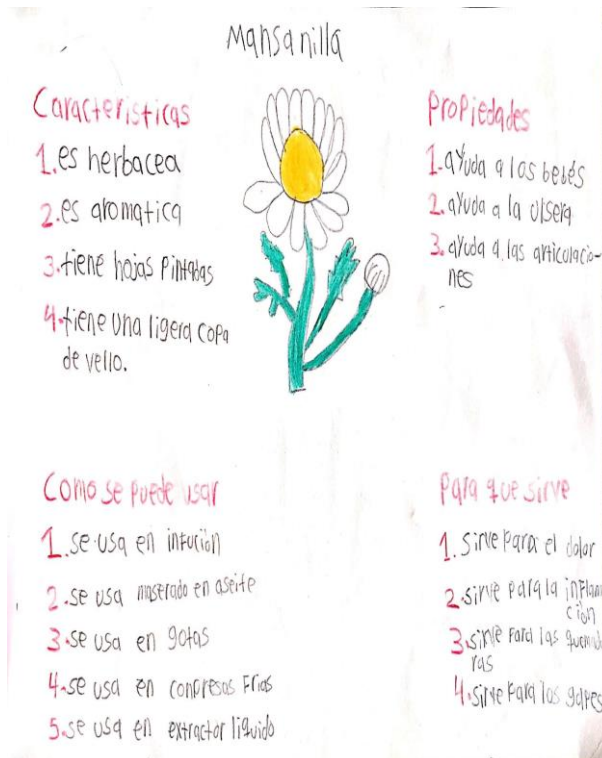 Mansanilla
Caracteristicas
1.es herbacea
2.es aromatica
3.tiene hojas Pintadas
4.tiene una ligera copa
de vello.
Propiedades
1.ayuda a los bebés
2.ayuda a la ulsera
3.ayuda a las articulacio-
nes
Como se puede usar
1.se usa en infución
2.se usa maserado en aseite
3.se usa en gotas
4.se usa en conpresas Frias
5.se usa en extractor liquido
Para que sirve
1.Sirve para el dolor
2.sirve para la inflama
ción
3.sirve para las quemadu
ras
4.sirve para los golpes